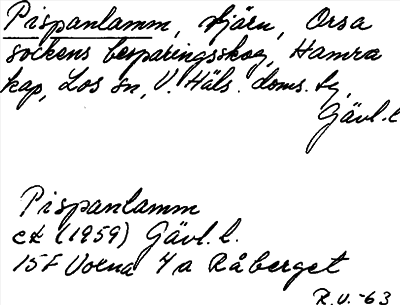 Pispanlamm, tjärn, Orsa
sockens besparingsskog, Hamra
kap, Los sn, V. Häls. doms. tg,
Gävl. l
Pispanlamm
ek (1959) Gävl. l.
15F Voxna 4a Råberget
R.V. -63